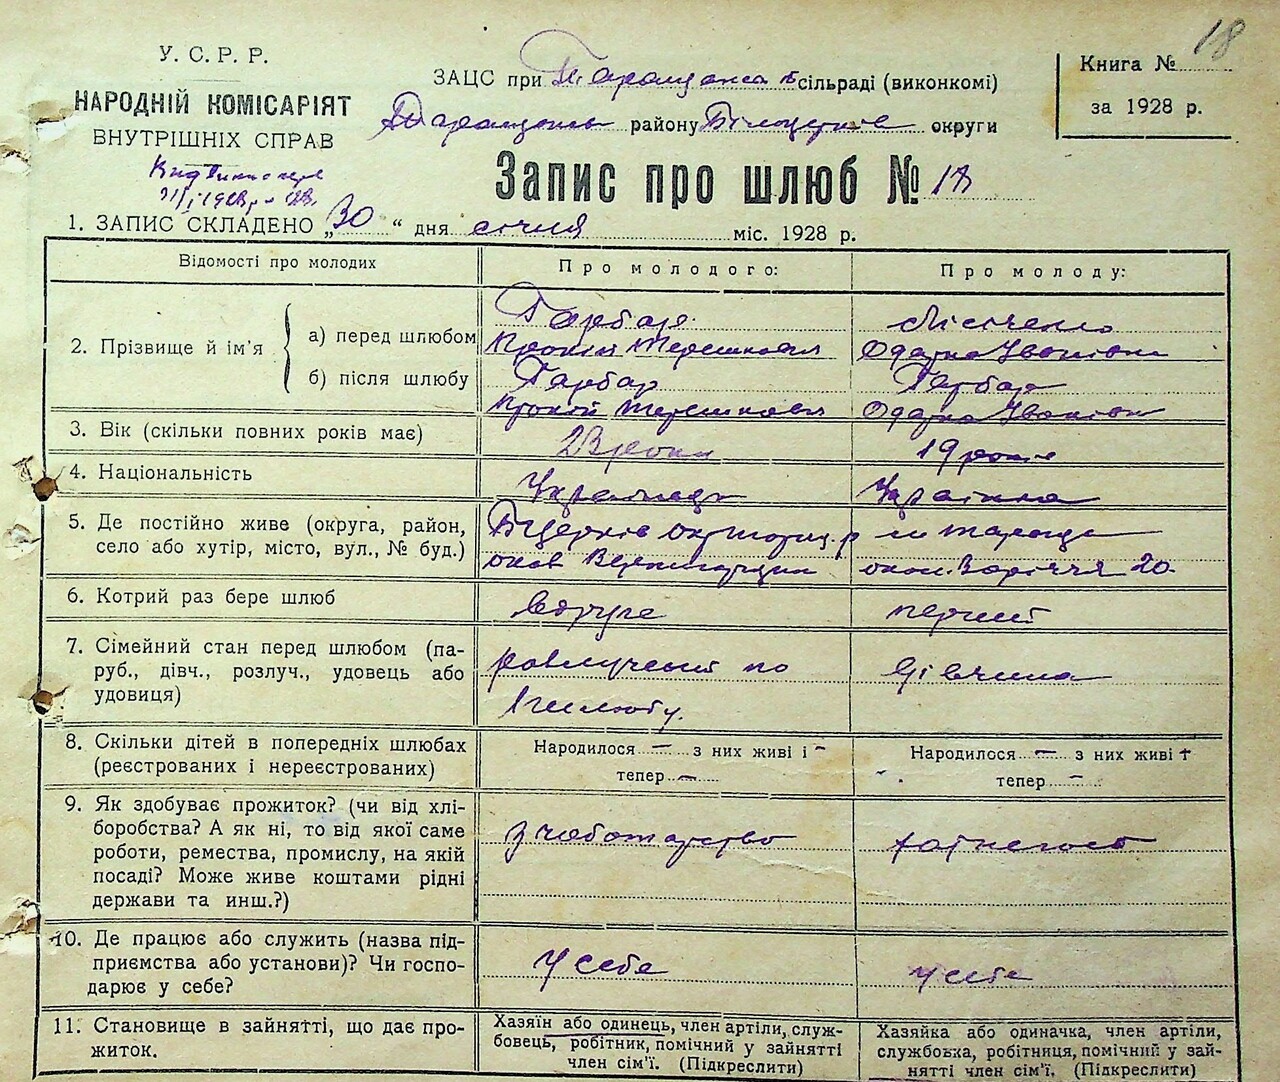 18
У. С. Р. Р.
НАРОДНІЙ КОМІСАРІЯТ
ВНУТРІШНІХ СПРАВ
ЗАЦС при сільраді (виконкомі)
району Білоцерків округи
Книга №
за 1928 р.
Запис про шлюб № 18
1. ЗАПИС СКЛАДЕНО „30“ дня січня міс. 1928 р.
Відомості про молодих
Про молодого:
Про молоду:
2. Прізвище й ім'я
а) перед шлюбом
Гарбар
Лісіченко
Одарка Іванівна
б) після шлюбу
Гарбар
Гарбар
Прокіп Терешкович
Одарка Іванівна
3. Вік (скільки повних років має)
23 роки
19 років
4. Національність
Українець
Українка
5. Де постійно живе (округа, район, село або хутір, місто, вул., № буд.)
округ
м Тараща
Заріччя 20
6. Котрий раз бере шлюб
вдруге
перший
7. Сімейний стан перед шлюбом (па-
руб., дівч., розлуч., удовець або
удовиця)
розлучений по
дівчина
1 шлюбу.
8. Скільки дітей в попередніх шлюбах
(реєстрованих і нереєстрованих)
Народилося — з них живі і —
тепер —
Народилося — з них живі і
тепер —
9. Як здобуває прожиток? (чи від хлі-
боробства? А як ні, то від якої саме
роботи, ремества, промислу, на якій
посаді? Може живе коштами рідні
держави та инш.?)
з чоботарства
10. Де працює або служить (назва під-
приємства або установи)? Чи госпо-
дарює у себе?
у себе
у себе
11. Становище в зайнятті, що дає про-
житок.
Хазяїн або одинець, член артіли, служ-
бовець, робітник, помічний у зайнятті
член сім'ї. (Підкреслити)
Хазяйка або одиначка, член артіли,
службовка, робітниця, помічний у зай-
нятті член сім'ї. (Підкреслити)